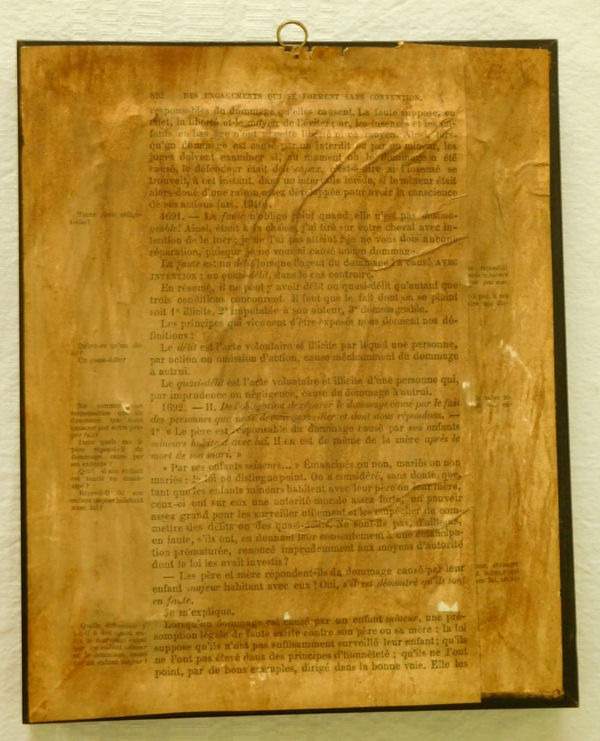 852 DES ENGAGEMENTS QUI SE FORMENT SANS CONVENTION.
responsables du dommage qu'elles causent. La faute suppose, en
effet, la liberté et le moyen de l'éviter: or, les insensés et les en-
fants en bas âge n'ont ni cette liberté ni ce moyen. Ainsi, lors-
qu'un dommage est causé par un interdit ou par un mineur, les
juges doivent examiner si, au moment où le dommage a été
causé, le défendeur était doli capax, c'est-à-dire si l'insensé se
trouvait, à cet instant, dans un intervalle lucide, si le mineur était
alors doué d'une raison assez développée pour avoir la conscience
de ses actions (art. 1310).
1691. — La faute n'oblige point quand elle n'est pas domma-
geable! Ainsi, étant à la chasse, j'ai tiré sur votre cheval avec in-
tention de le tuer; je ne l'ai pas atteint: je ne vous dois aucune
réparation, puisque je ne vous ai causé aucun dommage.
En faute est un délit lorsque l'agent du dommage l'a causé AVEC
INTENTION; un quasi-délit, dans le cas contraire.
En résumé, il ne peut y avoir délit ou quasi-délit qu'autant que
trois conditions concourent. Il faut que le fait dont on se plaint
soit 1° illicite, 2° imputable à son auteur, 3° dommageable.
Les principes qui viennent d'être exposés nous donnent nos dé-
finitions:
Le délit est l'acte volontaire et illicite par lequel une personne,
par action ou omission d'action, cause méchamment du dommage
à autrui.
Le quasi-délit est l'acte volontaire et illicite d'une personne qui,
par imprudence ou négligence, cause du dommage à autrui.
1692. — II. De l'obligation de réparer le dommage causé par le fait
des personnes que nous devons surveiller et dont nous répondons. —
1° « Le père est responsable du dommage causé par ses enfants
mineurs habitant avec lui. Il en est de même de la mère après la
mort de son mari. »
« Par ses enfants mineurs... » Émancipés ou non, mariés ou non
mariés: la loi ne distingue point. On a considéré, sans doute, que,
tant que les enfants mineurs habitent avec leur père ou leur mère,
ceux-ci ont sur eux une autorité morale assez forte, un pouvoir
assez grand pour les surveiller utilement et les empêcher de com-
mettre des délits ou des quasi-délits. Ne sont-ils pas, d'ailleurs,
en faute, s'ils ont, en donnant leur consentement à une émancipa-
tion prématurée, renoncé imprudemment aux moyens d'autorité
dont la loi les avait investis?
— Les père et mère répondent-ils du dommage causé par leur
enfant majeur habitant avec eux? Oui, s'il est démontré qu'ils sont
en faute.
Je m'explique.
Lorsqu'un dommage est causé par un enfant mineur, une pré-
somption légale de faute existe contre son père ou sa mère: la loi
suppose qu'ils n'ont pas suffisamment surveillé leur enfant; qu'ils
ne l'ont pas élevé dans des principes d'honnêteté; qu'ils ne l'ont
point, par de bons exemples, dirigé dans la bonne voie. Elle les
Toute faute oblige-
t-elle?
Qu'est-ce qu'un dé-
lit?
Un quasi-délit?